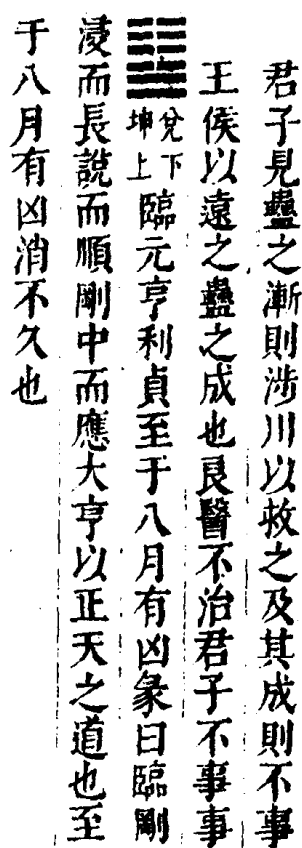 君子見蠱之漸則涉川以救之及其成則不事
王侯以遠之蠱之成也良醫不治君子不事事
䷒兌下坤上臨元亨利貞至于八月有凶彖曰臨剛
浸而長說而順剛中而應大亨以正天之道也至
于八月有凶消不久也